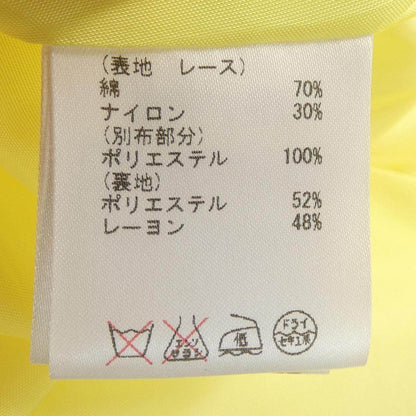 (表地　レース)
綿 70%
ナイロン 30%
(別布部分)
ポリエステル 100%
(裏地)
ポリエステル 52%
レーヨン 48%
エンソ サラシ 低 ドライ セキユ系